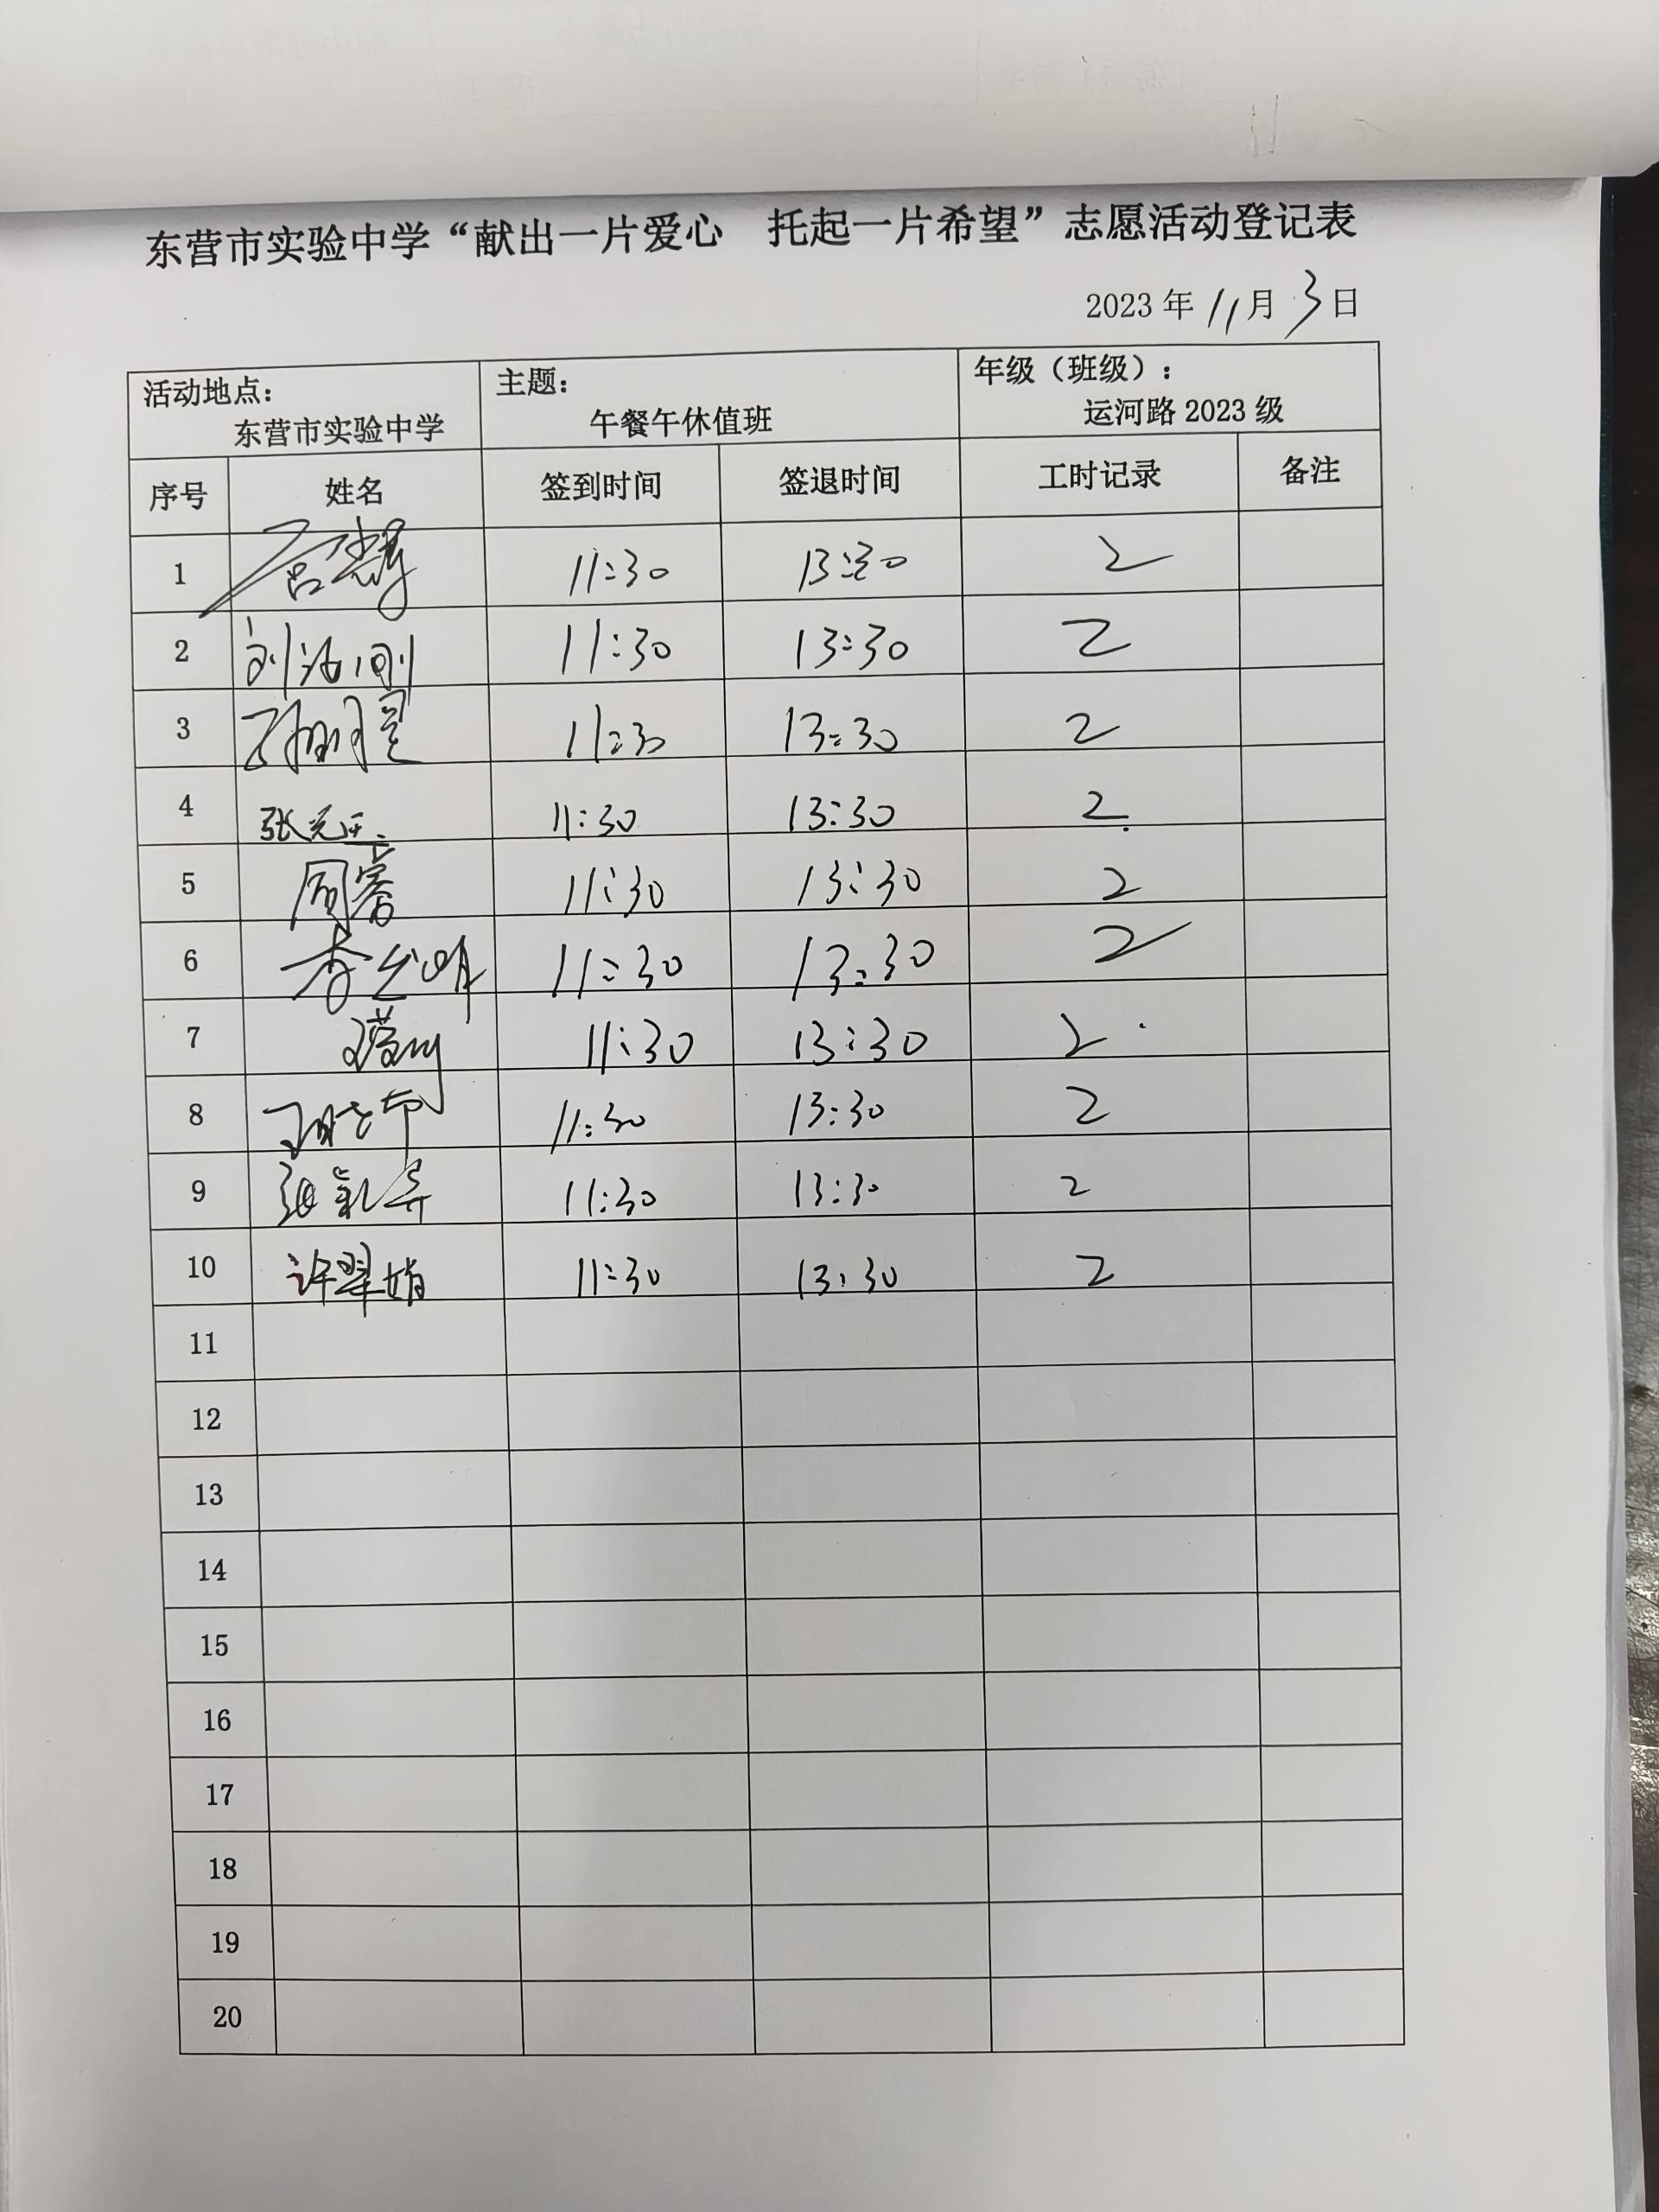 东营市实验中学“献出一片爱心 托起一片希望”志愿活动登记表
2023 年 11 月 3 日
活动地点： 主题： 年级（班级）：
东营市实验中学 午餐午休值班 运河路 2023 级
序号 姓名 签到时间 签退时间 工时记录 备注
1 11:30 13:30 2
2 刘 刚 11:30 13:30 2
3 11:30 13:30 2
4 张 11:30 13:30 2
5 周 11:30 13:30 2
6 李 明 11:30 13:30 2
7 11:30 13:30 2
8 11:30 13:30 2
9 张 11:30 13:30 2
10 许翠娟 11:30 13:30 2
11
12
13
14
15
16
17
18
19
20